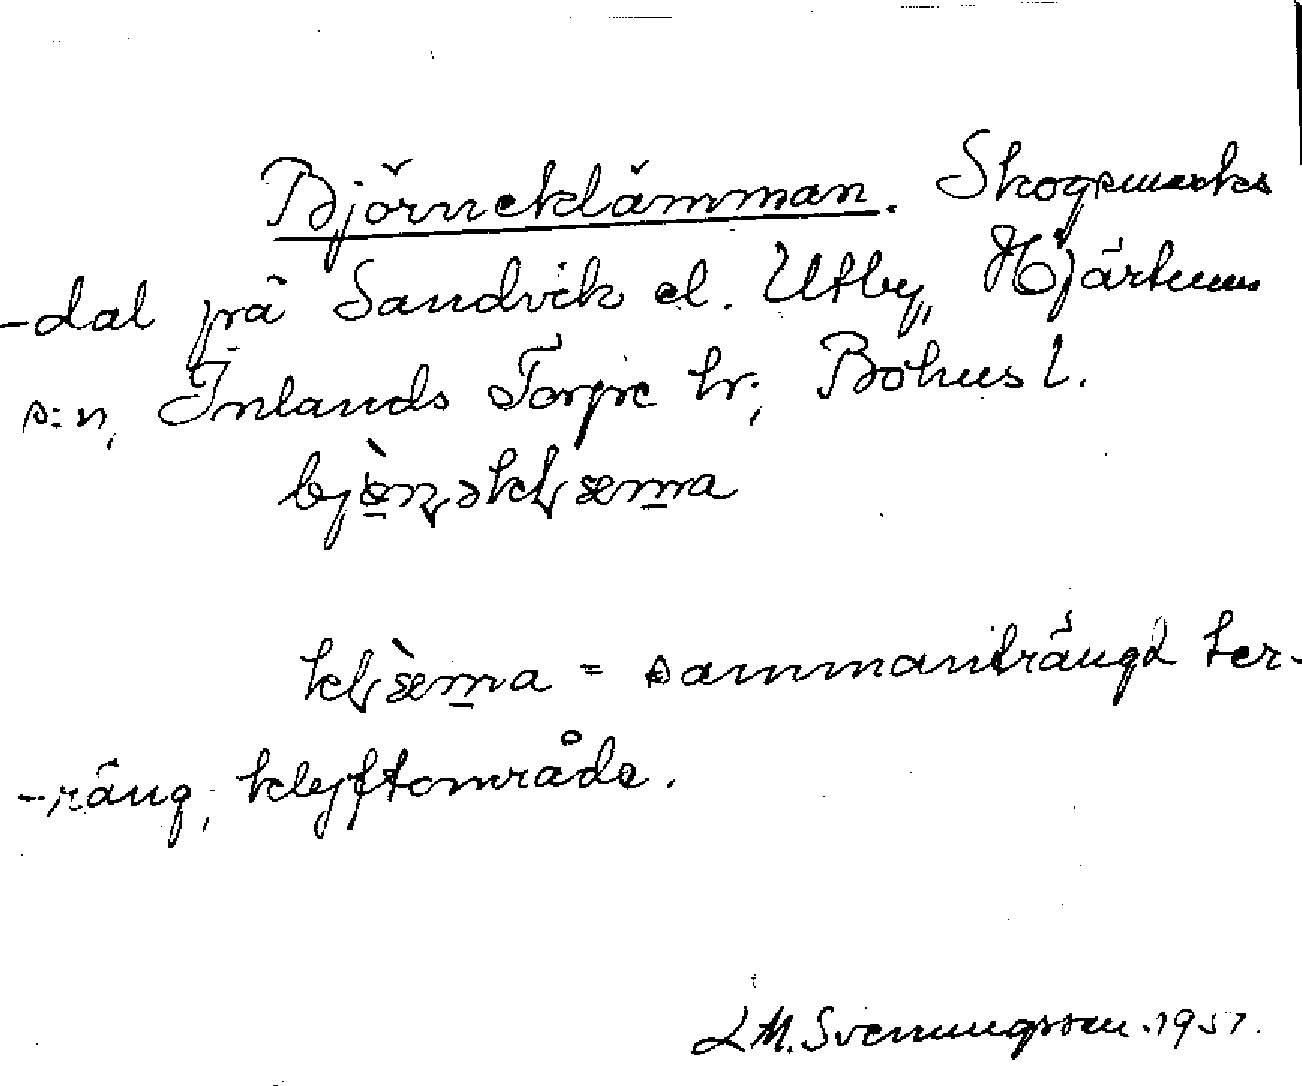 Björneklämman. Skogsmarks
-dal på Sandvik el. Utby, Hjärtums
s:n, Inlands Torpe hr, Bohusl.
bjɵ̀ɳəkɽæma
kɽæ̀ma = sammanträngd ter-
-räng, klyftområde.
L M. Svenungsson. 1957.